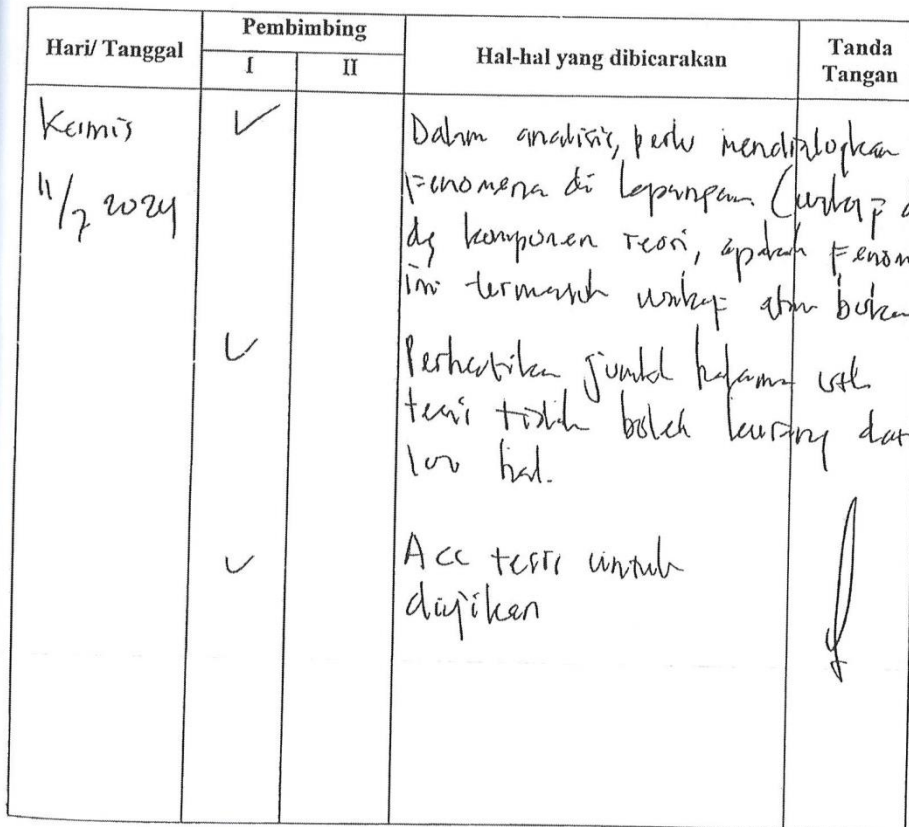 Hari/ Tanggal
Pembimbing
I
II
Hal-hal yang dibicarakan
Tanda
Tangan
Kamis
11/7 2024
Dalam analisis, perlu mendialogkan
Fenomena di lapangan
dg komponen teori, apakah Fenom
ini termasuk atau bukan
Perhatikan jumlah halaman utk
tesis tidak boleh kurang dari
100 hal.
Acc tesis untuk
diujikan